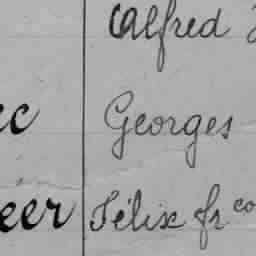 Alfred
ec Georges
eer Félix fr co